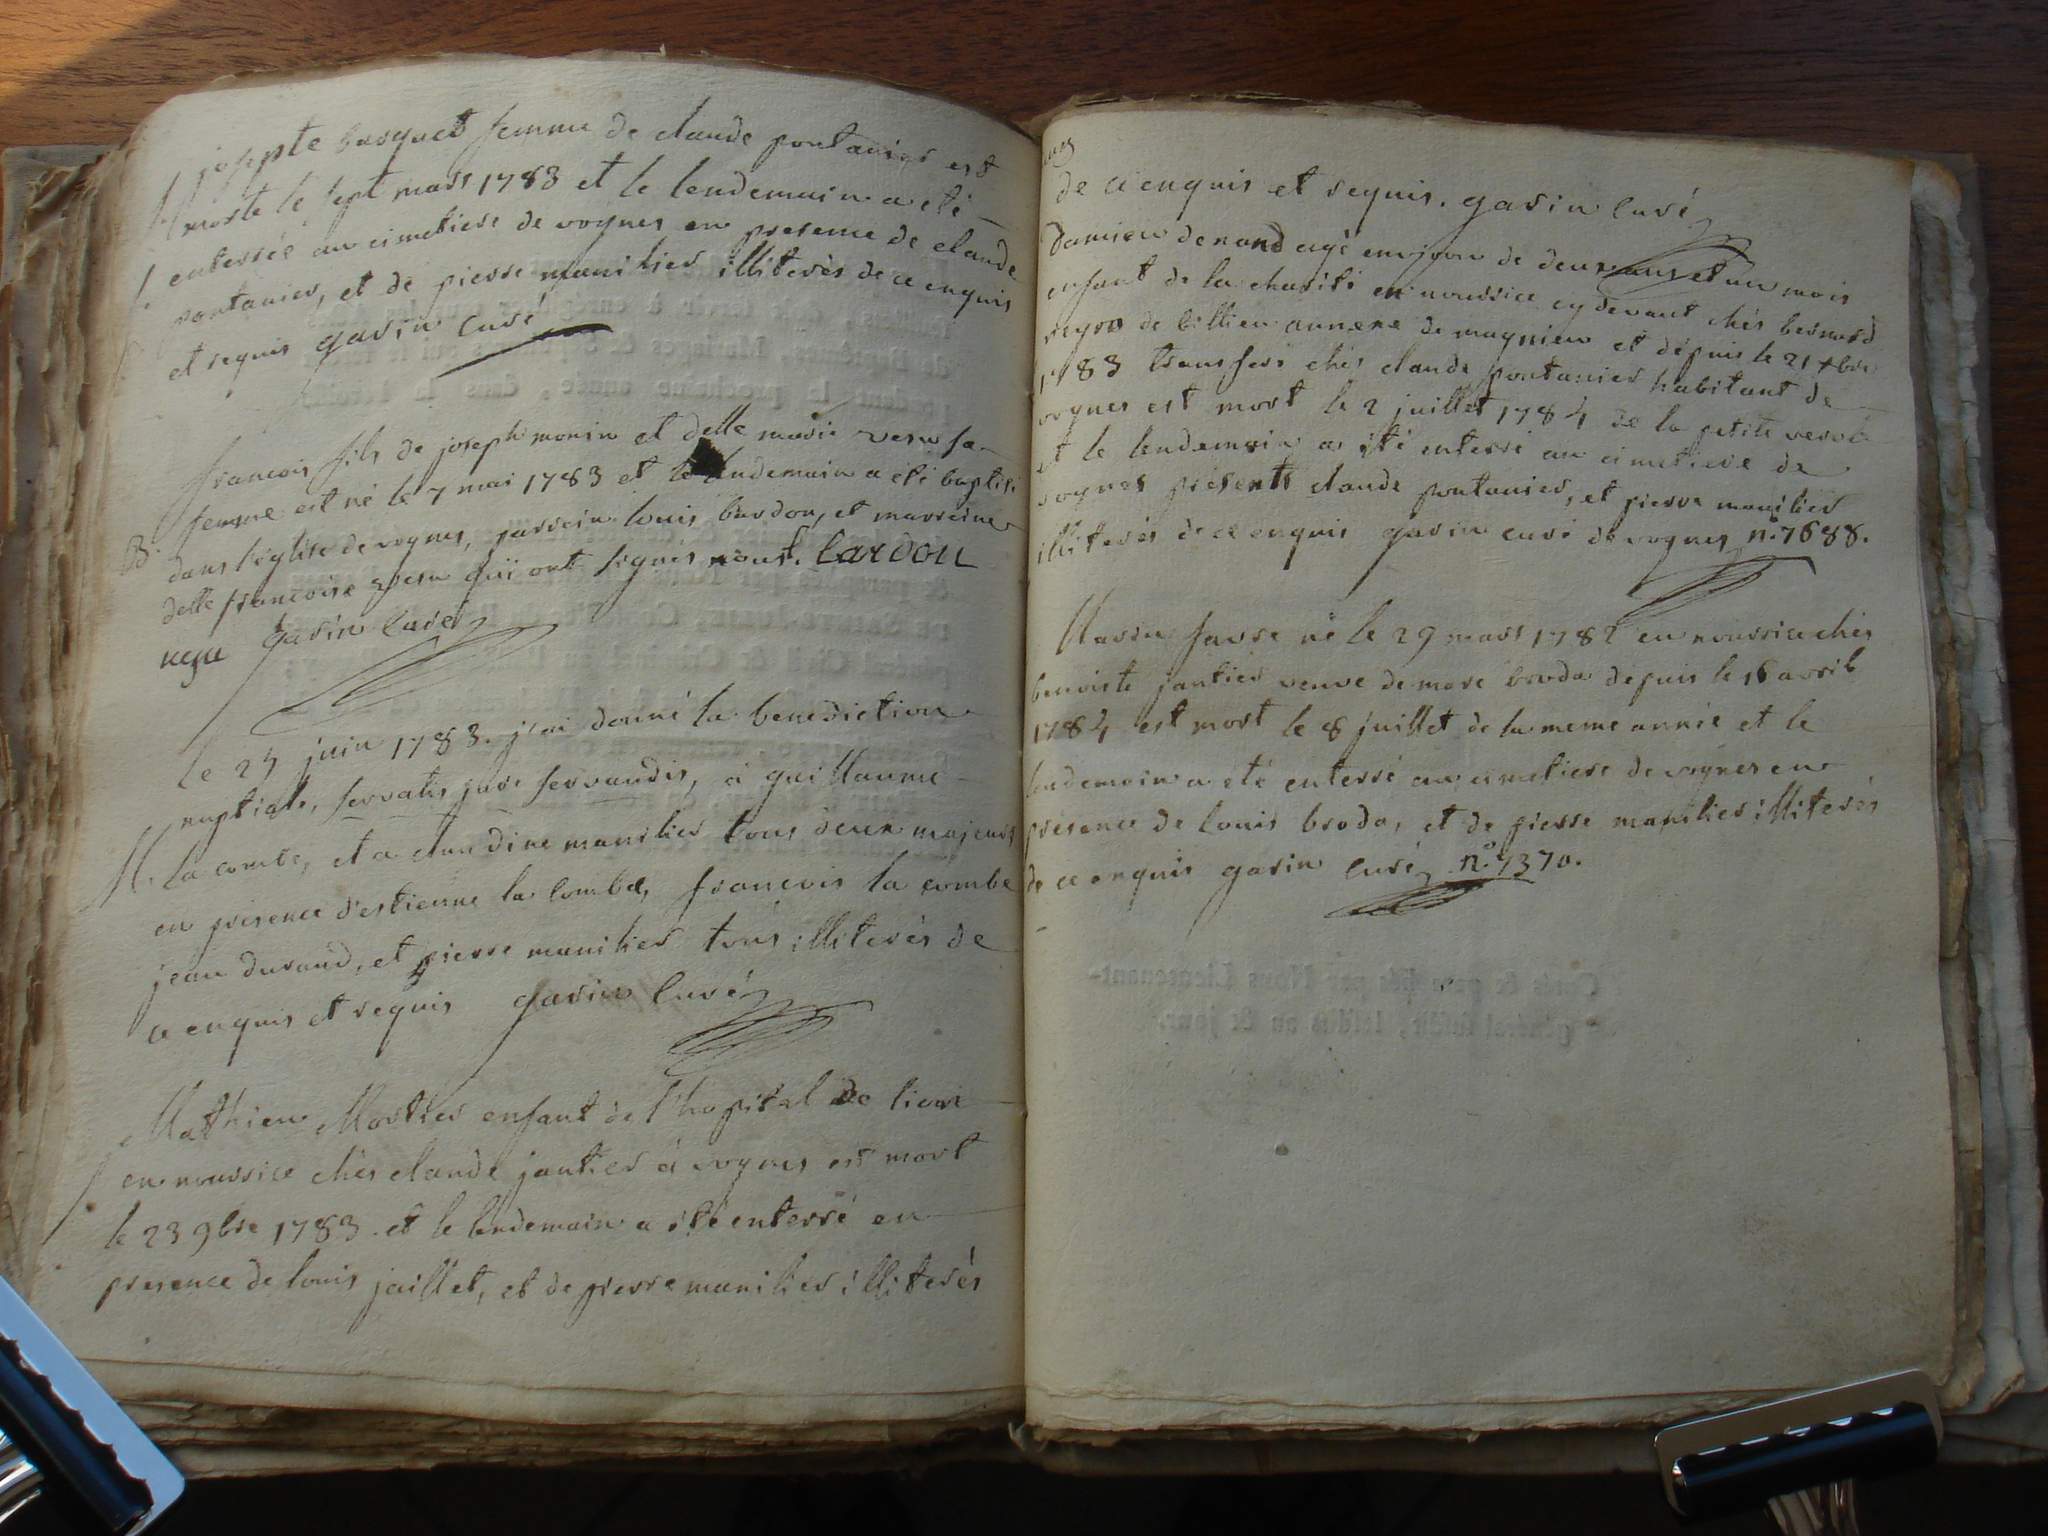 josepte busquet femme de claude pontanier est
morte le sept mars 1783 et le lendemain a eté
enterrée au cimetiere de vognes en presence de claude
pontanier, et de pierre manilier illiterés de ce enquis
et requis garin curé
francois fils de joseph monin et delle marie sa
femme est né le 7 mai 1783 et le lendemain a eté baptisé
B. dans l'église de vognes, parrein louis bardon, et marreine
delle francoise qui ont signés
garin curé
le 24 juin 1783. j'ai donné la benediction
nuptiale, servatis jure servandis, à guillaume
M. la combe, et a claudine manilier tous deux majeurs
en présence d'estienne la combe, francois la combe
jean durand, et pierre manilier tous illiterés de
ce enquis et requis garin curé
Mathieu Mortier enfant de l'hopital de lion
en nourrice chés claude jantier à vognes est mort
le 23 9bre 1783. et le lendemain a été enterré en
presence de louis jaillet, et de pierre manilier illiterés
de ce enquis et requis. garin curé
Damien denand agé environ de deux ans et un mois
enfant de la charité en nourrice cy devant chés bernard
de billieu annexe de magnieu et dépuis le 21 xbre
1783 transferé chés claude pontanier habitant de
vognes est mort le 2 juillet 1784 de la petite verole
et le lendemain a été enterré au cimetiere de
vognes présents claude pontanier, et pierre manilier
illiterés de ce enquis garin curé de vognes n.º 7688.
Marin favre né le 29 mars 1782 en nourrice chés
benoiste jantier veuve de marc broda depuis le 16 avril
1784 est mort le 8 juillet de la meme année et le
lendemain a été enterré au cimetiere de vognes en
présence de louis broda, et de pierre manilier illiterés
de ce enquis garin curé n.º 7370.